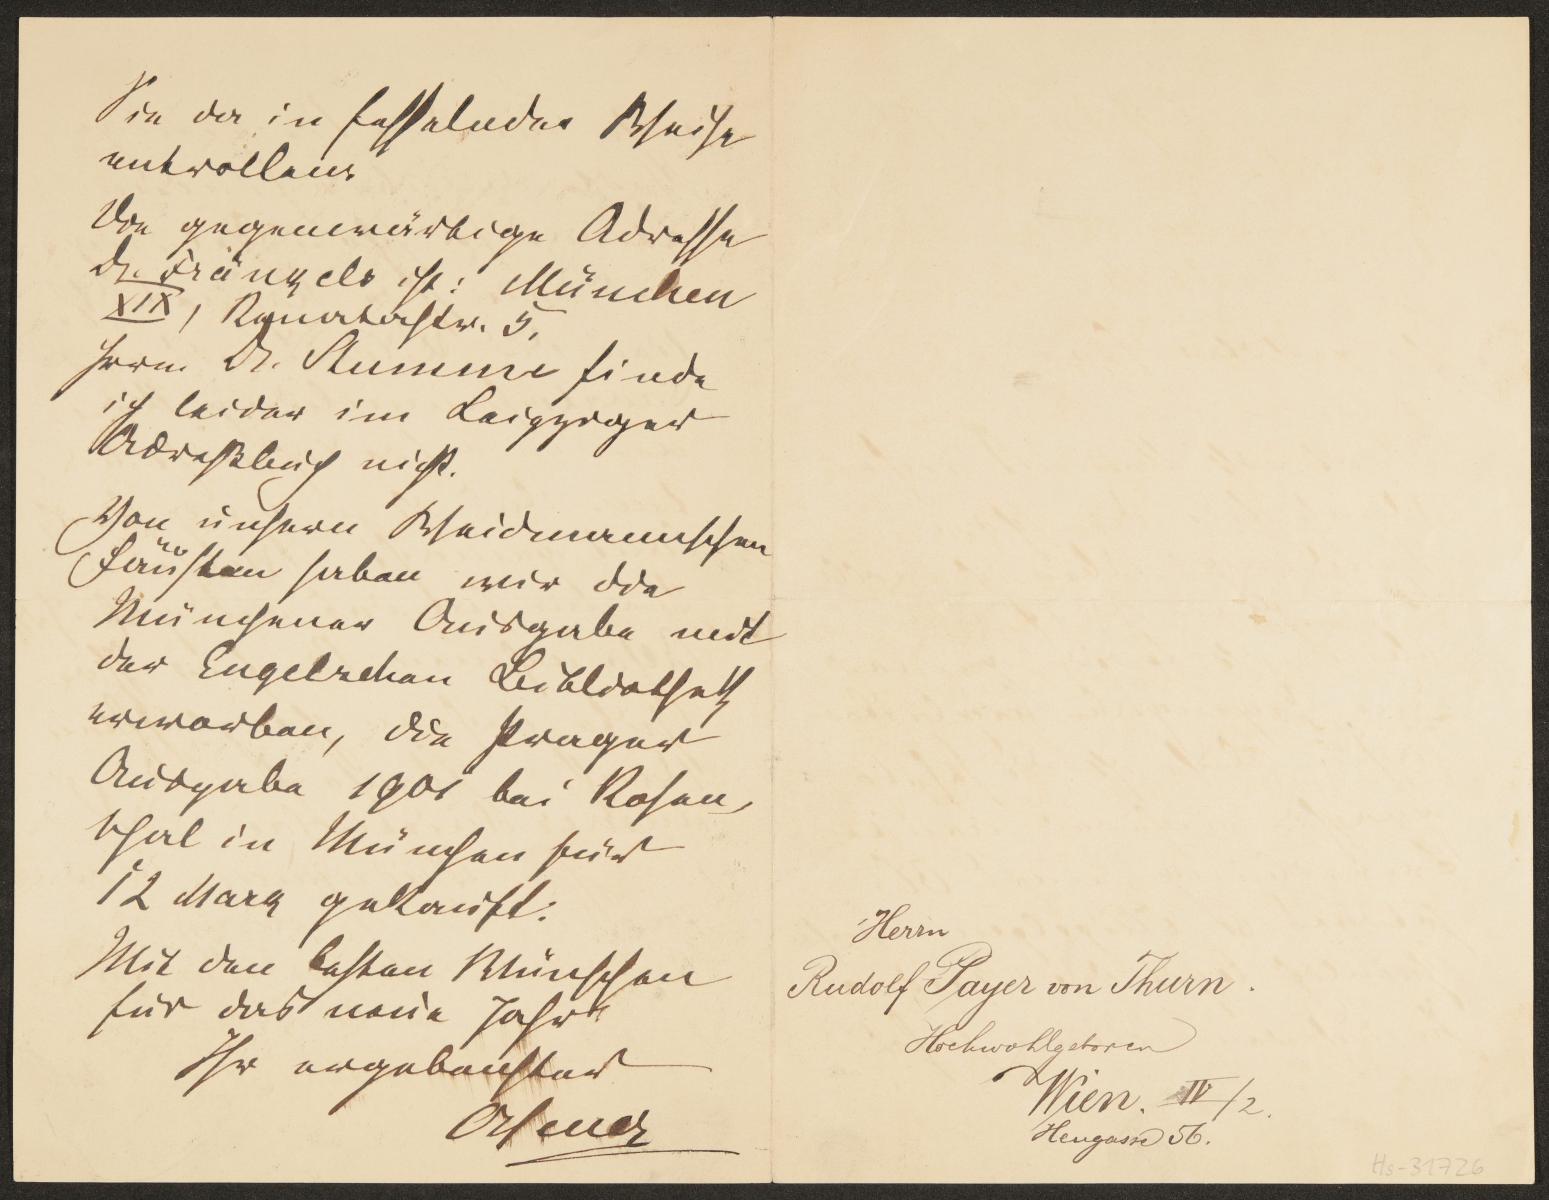 Sie da in fesselnder Weise
entrollen.
Die gegenwärtige Adresse
Dr. Fränkels ist: München
XIX, Renatastr. 5.
Herrn Dr. Stumme finde
ich leider im Leipziger
Adreßbuch nicht.
Von unsern Weidmannschen
Fausten haben wir die
Münchener Ausgabe mit
der Engelschen Bibliothek
erworben, die Prager
Ausgabe 1901 bei Rosen-
thal in München für
12 Mark gekauft.
Mit den besten Wünschen
für das neue Jahr
Ihr ergebenster
Herrn
Rudolf Payer von Thurn.
Hochwohlgeboren
Wien. IV/2.
Heugasse 56.
Hs-31726